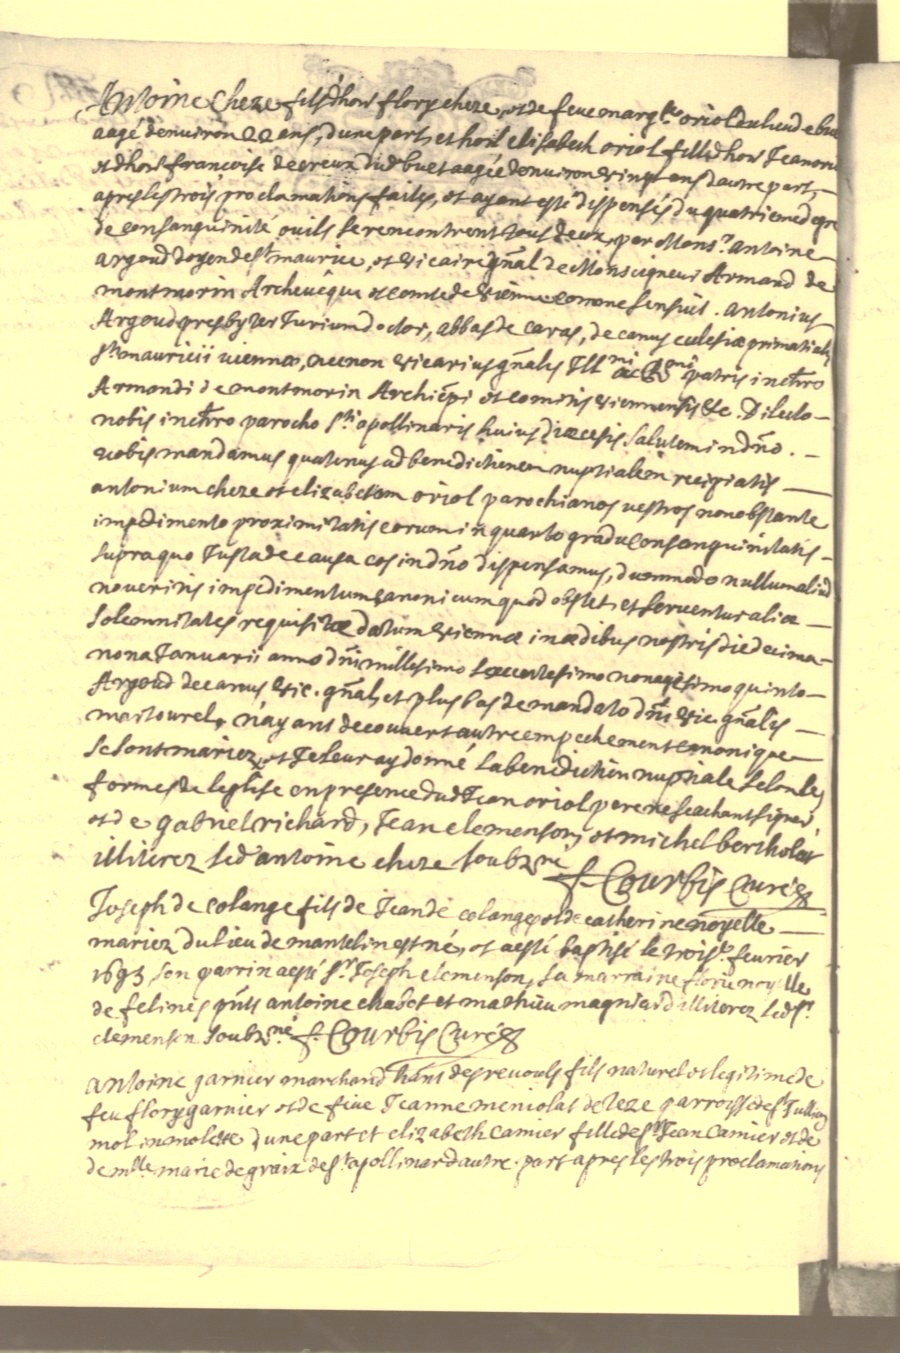 Antoine Cheze fils d'hon flory cheze, et de feue marg.te oriol du lieu de bue
aagé denuiron 22 ans, dune part, et hon elisabeth oriol fille d'hon Jean
et d'hon francoise de du d. buet aagée denuiron vingt ans dautre part,
apres les trois proclamations faites, et ayant esté dispensés du quatrieme degre
de consanguinité ou ils se rencontrent tous deux, par Mons.r antoine
argoud doyen de S.t maurice, et vicaire gñal de Monseigneur Armand de
montmorin Archevêque et comte de vienne comme sensuit. Antonius
Argoud presbyter Jurium doctor, abbas de Caras, decanus ecclesiæ primatialis
S.ti mauricii viennæ, necnon vicarius gñalis Ill.mi ac R.mi patris in chro
Armandi de montmorin Archiepi et comitis viennensis &c. Dilecto
nobis in chro parocho S.ti apollinaris huius diœcesis salutem in dño.
vobis mandamus quatenus ad benedictionem nuptialem recipiatis
antonium cheze et elizabetam oriol parochianos vestros non obstante
impedimento proximitatis eorum in quarto gradu consanguinitatis
supra quo Justa de causa eos in dño dispensamus, dummodo nullum aliud
noveritis impedimentum canonicum quod obstet, et serventur aliæ
solemnitates requisitæ datum viennæ in ædibus nostris die decima
nona Januarii anno dñi millesimo sexcentesimo nonagesimo quinto
Argoud decanus vic. gñalis et plus bas de mandato dñi vic. gñalis
n'ayant decouvert autre empechement canonique
se sont mariez, et Je leur ay donné la benediction nuptiale selon les
formes de leglise en presence dud. Jean oriol pere ne scachant signer,
et de gabriel richard, Jean clemenson, et michel bertholat
illiterez led. antoine cheze soubz.né f. Courbis Curé
Joseph de colange fils de Jean de colange et de catherine noyelle
mariez du lieu de mantelin est né, et a esté baptisé le trois.e feurier
1695 son parrin a esté S.r Joseph clemenson, sa marraine florie noyelle
de felines pñts antoine chabot et mathieu magniard illiterez led. S.r
clemenson soubz.né f. Courbis Curé
antoine garnier marchand hant des revouls fils naturel et legitime de
feu flory garnier et de feue Jeanne meniolat de parroisse de S.t Jullien
molinmolette dune part et elizabeth Camier fille de S.r Jean Camier et de
de m.lle marie de graix de S.t apollinard autre part apres les trois proclamations